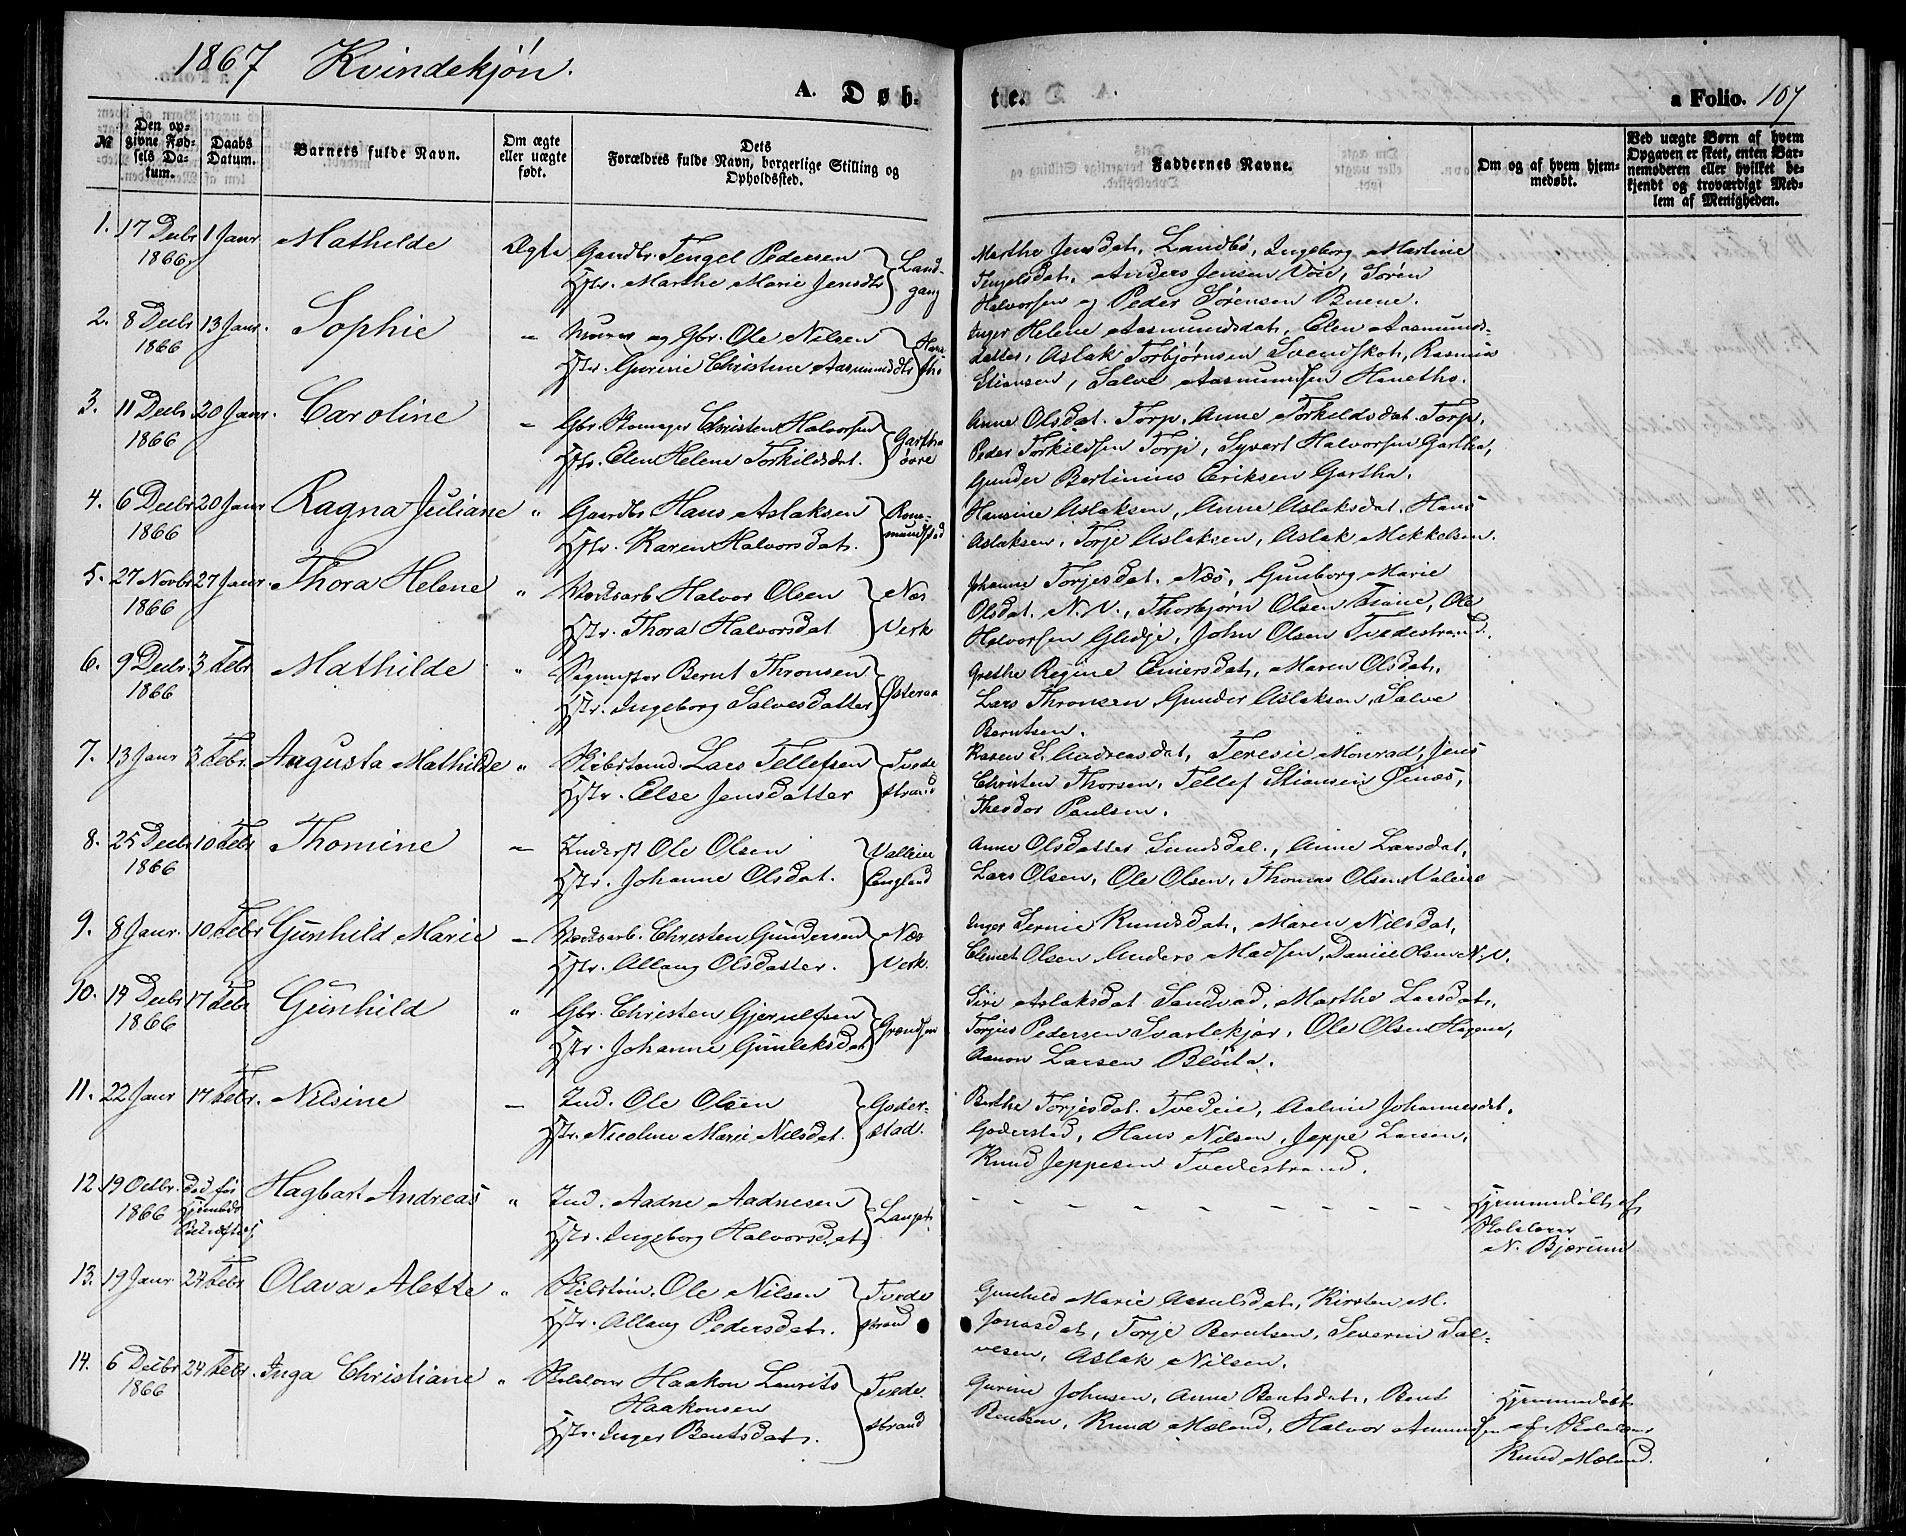 1867 Kvindekjøn.
A. Døb-
te.
a Folio. 107
№
Den op-
givne Fød-
sels Da-
tum.
Daabs
Datum.
Barnets fulde Navn.
Om ægte
eller uægte
født.
Dets
Forældres fulde Navn, borgerlige Stilling og
Opholdssted.
Faddernes Navne.
Om og af hvem hjem-
medøbt.
Ved uægte Børn af hvem
Opgaven er skeet, enten Bar-
nemoderen eller hvilket be-
kjendt og troværdigt Med-
lem af Menigheden.
1. 17 Decbr 1 Janr Mathilde Ægte Gaardbr. Tengel Pedersen Land-
1866 Hstr. Marthe Marie Jensdtr gang
Marthe Jensdat. Landbø, Ingeborg Martine
Tengelsdat. Anders Jensen Voie, Søren
Halvorsen og Peder Sørensen Buene.
2. 8 Decbr 13 Janr. Sophie " Murer og Gbr. Ole Nilsen
1866 Hstr. Gurine Christine Aasmundsdtr
Inger Helene Aasmundsdat. Elen Aasmunds-
datter, Aslak Torbjørnsen Svendskot, Rasmus
Stiansen, Salve Aasmundsen Hanetho.
3. 11 Decbr 20 Janr. Caroline " Gbr. Skomager Christen Halvorsen Gartha
1866 Hstr. Elen Helene Torkildsdat. øvre
Anne Olsdat. Torp, Anne Torkildsdat. Torp,
Peder Torkildsen Torp, Syvert Halvorsen Gartha,
Gunder Bertinius Eriksen Gartha.
4. 6 Decbr 20 Janr Ragna Juliane " Gaardbr Hans Aslaksen Rom-
1866 Hstr. Karen Halvorsdat. mundstad
Hansine Aslaksen, Anne Aslaksdat. Hans
Aslaksen, Torje Aslaksen, Aslak Mekkelsen.
5. 27 Novbr 27 Janr. Thora Helene " Værksarb. Halvor Olsen Næs
1866 Hstr. Thora Halvorsdat Verk
Johanne Torjesdat. Næs, Gunborg Marie
Olsdat. N. V., Thorbjørn Olsen Tiane, Ole
Halvorsen Glidje, John Olsen Tvedestrand.
6. 9 Decbr. 3 Febr Mathilde " Bernt Thronsen Østeraa
1866 Hstr. Ingeborg Salvesdatter
Grethe Regine Einersdat, Maren Olsdat.
Lars Thronsen, Gunder Aslaksen, Salve
Berntsen.
7. 13 Janr 3 Febr. Augusta Mathilde " Skibstømd. Lars Tellefsen Tvede
Hstr. Else Jensdatter strand
Karen S. Andreasdat, Teresie Monrad, Jens
Christen Thorsen, Tellef Stiansen Øinæs,
Theodor Paulsen.
8. 25 Decbr 10 Febr Thomine " Inderst Ole Olsen Valleie
1866 Hstr. Johanne Olsdat. Eengland
Anne Olsdatter Lundsdal., Anne Larsdat,
Lars Olsen, Ole Olsen, Thomas Olsen Valeie
9. 8 Janr. 10 Febr Gunhild Marie " Værksarb. Christen Gundersen Næs
Hstr. Allaug Olsdatter. Verk.
Inger Knudsdat, Maren Nilsdat,
Clemet Olsen Anders Madsen, Daniel Olsen N. V.
10. 19 Decbr 17 Febr Gunhild " Gbr. Christen Gjerulfsen
1866 Hstr. Johanne Gunleksdat
Siri Aslaksdat Sandvad, Marthe Larsdat,
Torjus Pedersen Svartekjær, Ole Olsen Hagene,
Aanon Larsen Bløita.
11. 22 Janr 17 Febr. Nilsine " Ind. Ole Olsen Goder-
Hstr. Nicoline Marie Nilsdat. stad.
Berthe Torjesdat. Tvedeie, Aaline Johannesdat.
Goderstad, Hans Nilsen, Jeppe Larsen,
Knud Jeppesen Tvedestrand.
12. 19 Octbr. død før Hagbart Andreas " Ind. Aadne Aadnesen Laupst.
1866 Hstr. Ingeborg Halvorsdat
- - - - - - - - -
Hjemmedøbt af
Skolelærer
N. Bjorum
13. 19 Janr 24 Febr Olava Alette " Ole Nilsen Tvede
Hstr. Allaug Pedersdat. strand
Gunhild Marie Assulsdat, Kirsten M.
Jonasdat, Torje Berntsen, Severin Sal-
vesen, Aslak Nilsen.
14. 6 Decbr 24 Febr. Inga Christiane " Skolelærer Haakon Laurits Tvede
1866 Haakonsen strand
Hstr. Inger Bentsdat.
Gurine Johnsen, Anne Bentsdat, Bent
Bentsen, Knud Mæland, Halvor Amundsen
Hjemmedøbt
af Skolelærer
Knud Mæland.